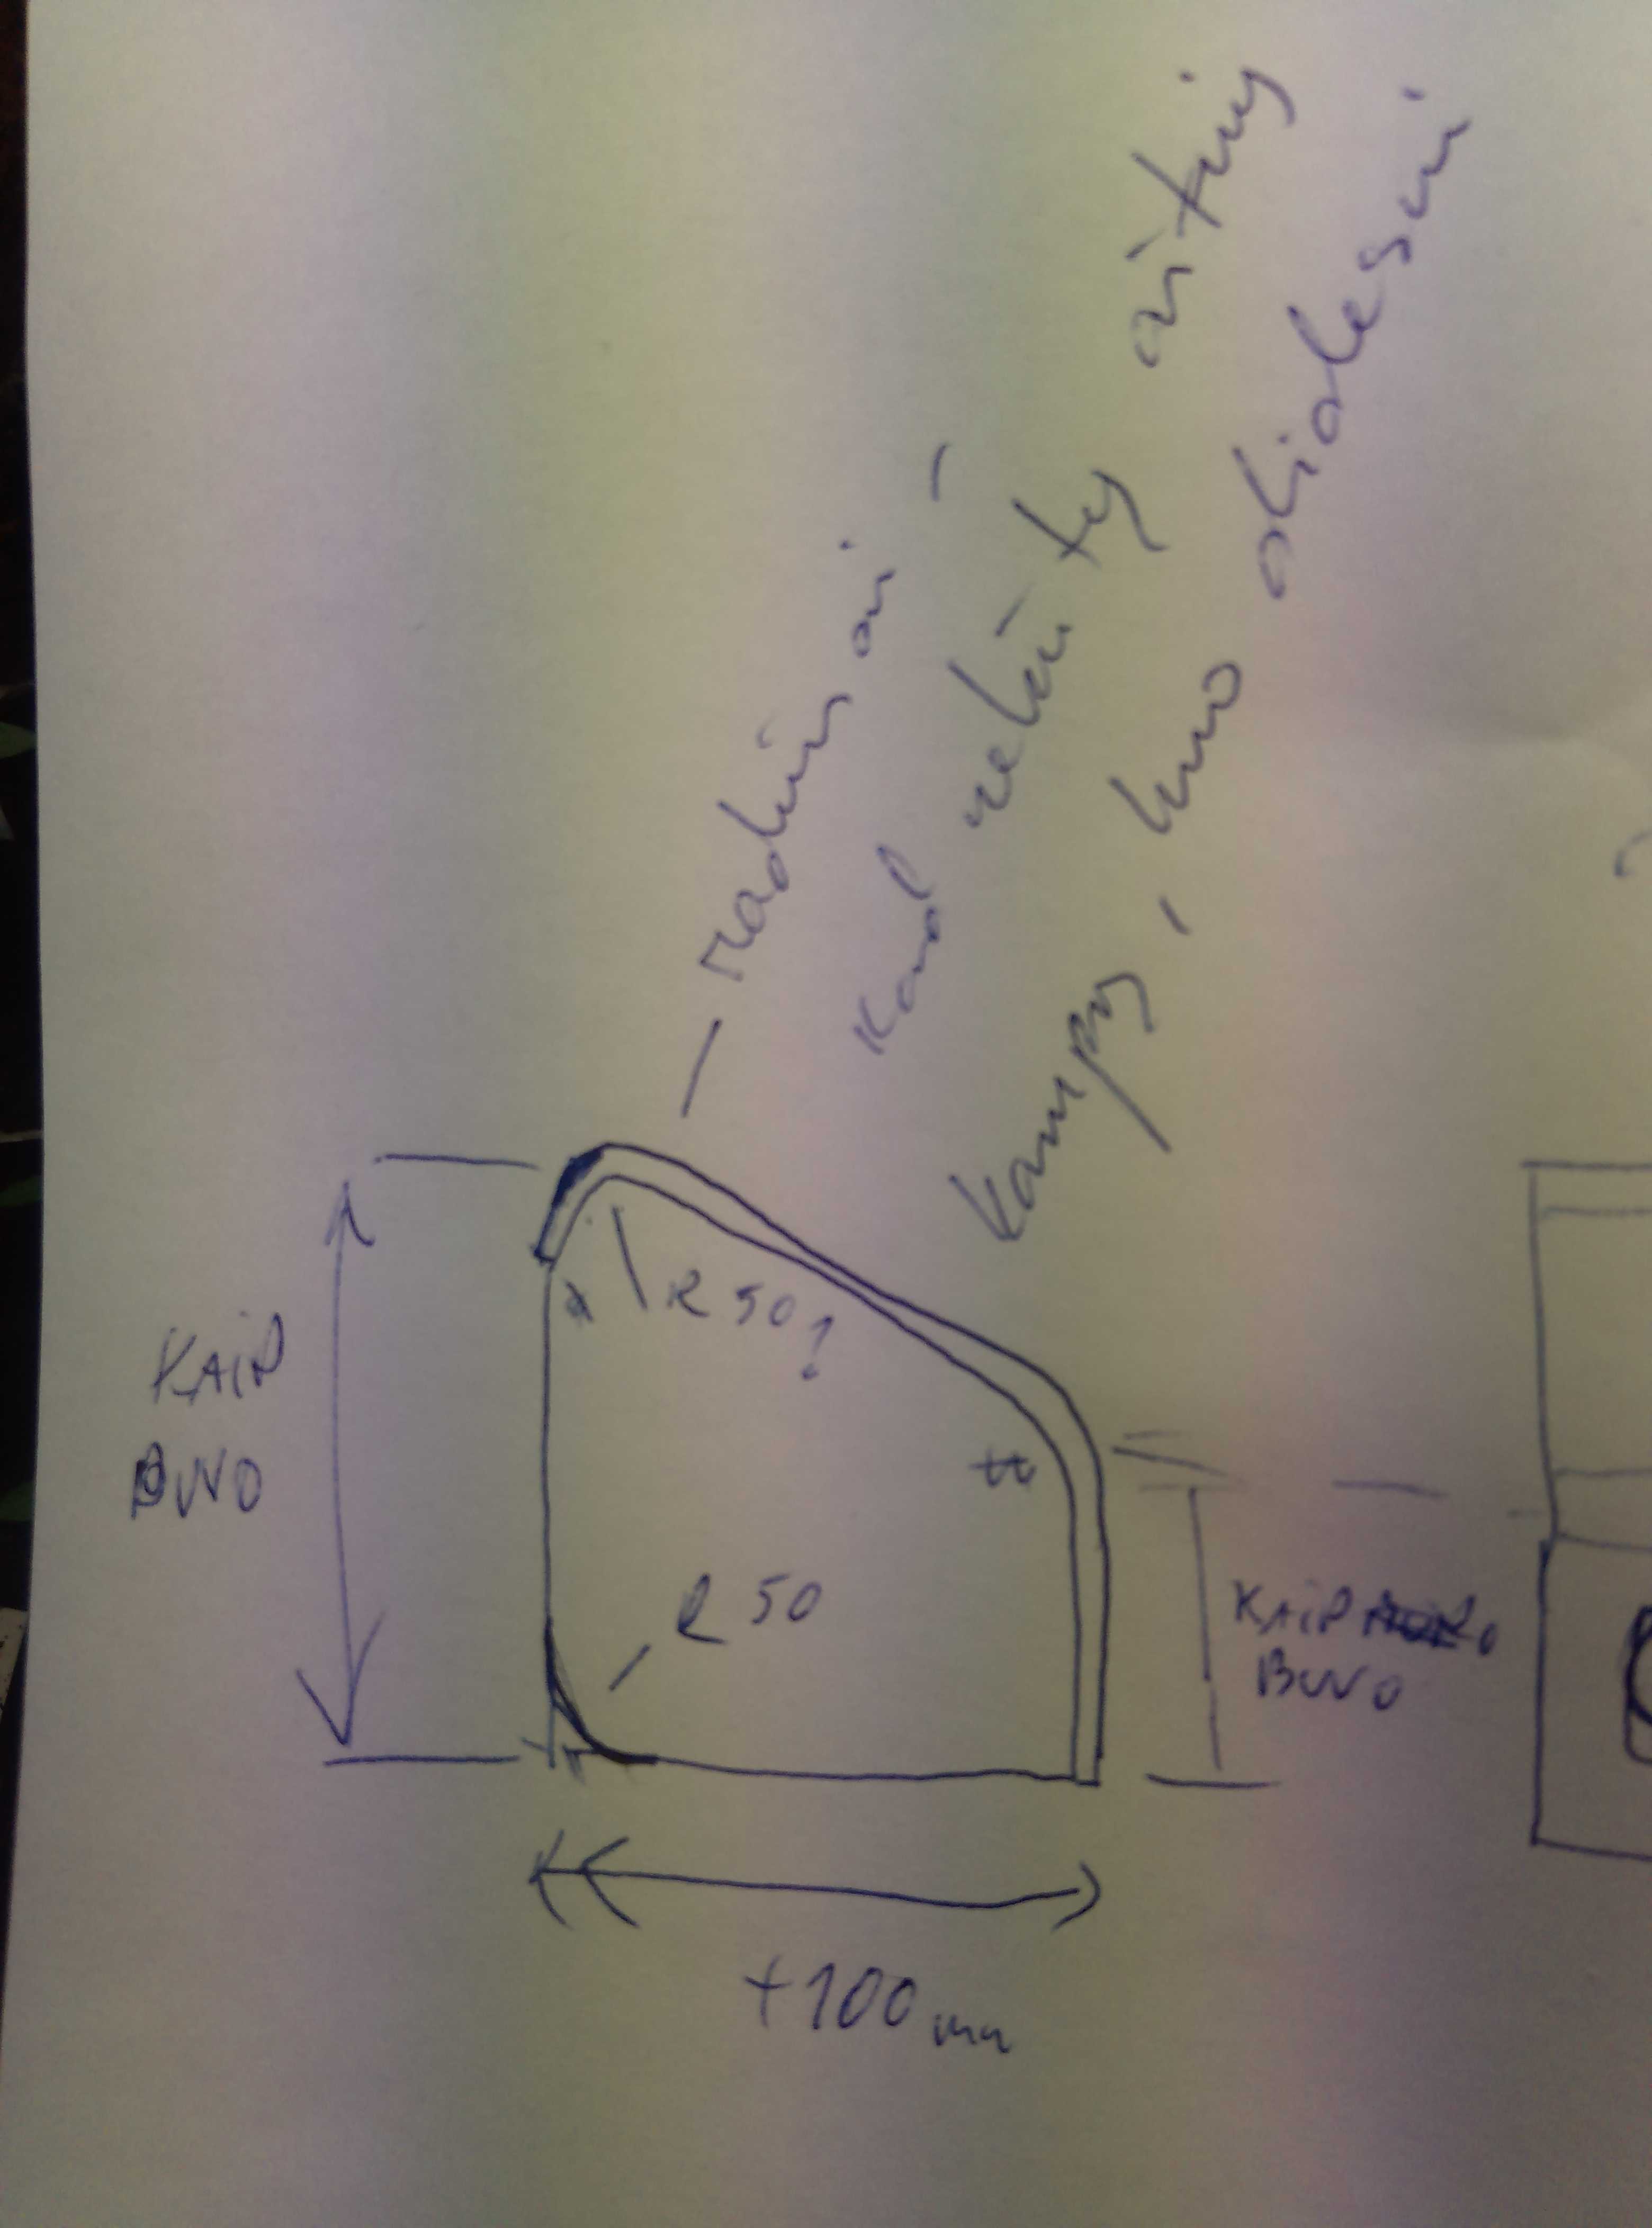 – radiusai –
kad nebūtų aštrių
kampų, kuo didesni
R 50?
KAIP
BUVO
R 50
KAIP
BUVO
+100 mm